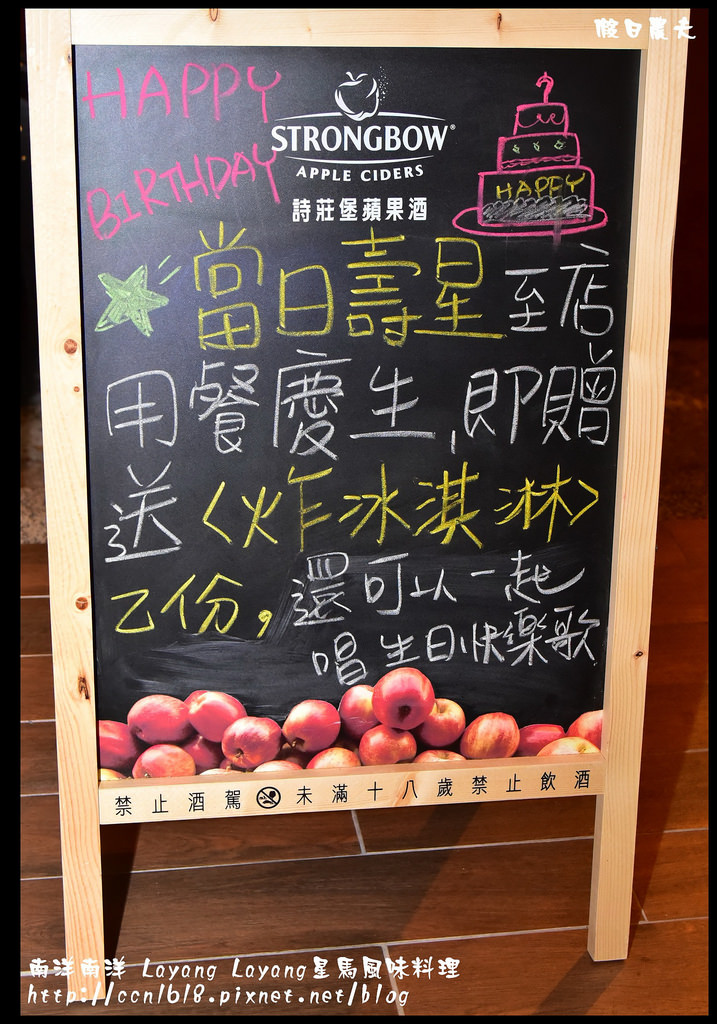 假日農夫
HAPPY
BIRTHDAY
STRONGBOW®
APPLE CIDERS
詩莊堡蘋果酒
?
HAPPY
當日壽星至店
用餐慶生,即贈
送〈炸冰淇淋〉
乙份,還可以一起
唱生日快樂歌
禁止酒駕 未滿十八歲禁止飲酒
南洋南洋 Layang Layang星馬風味料理
http://ccn1618.pixnet.net/blog